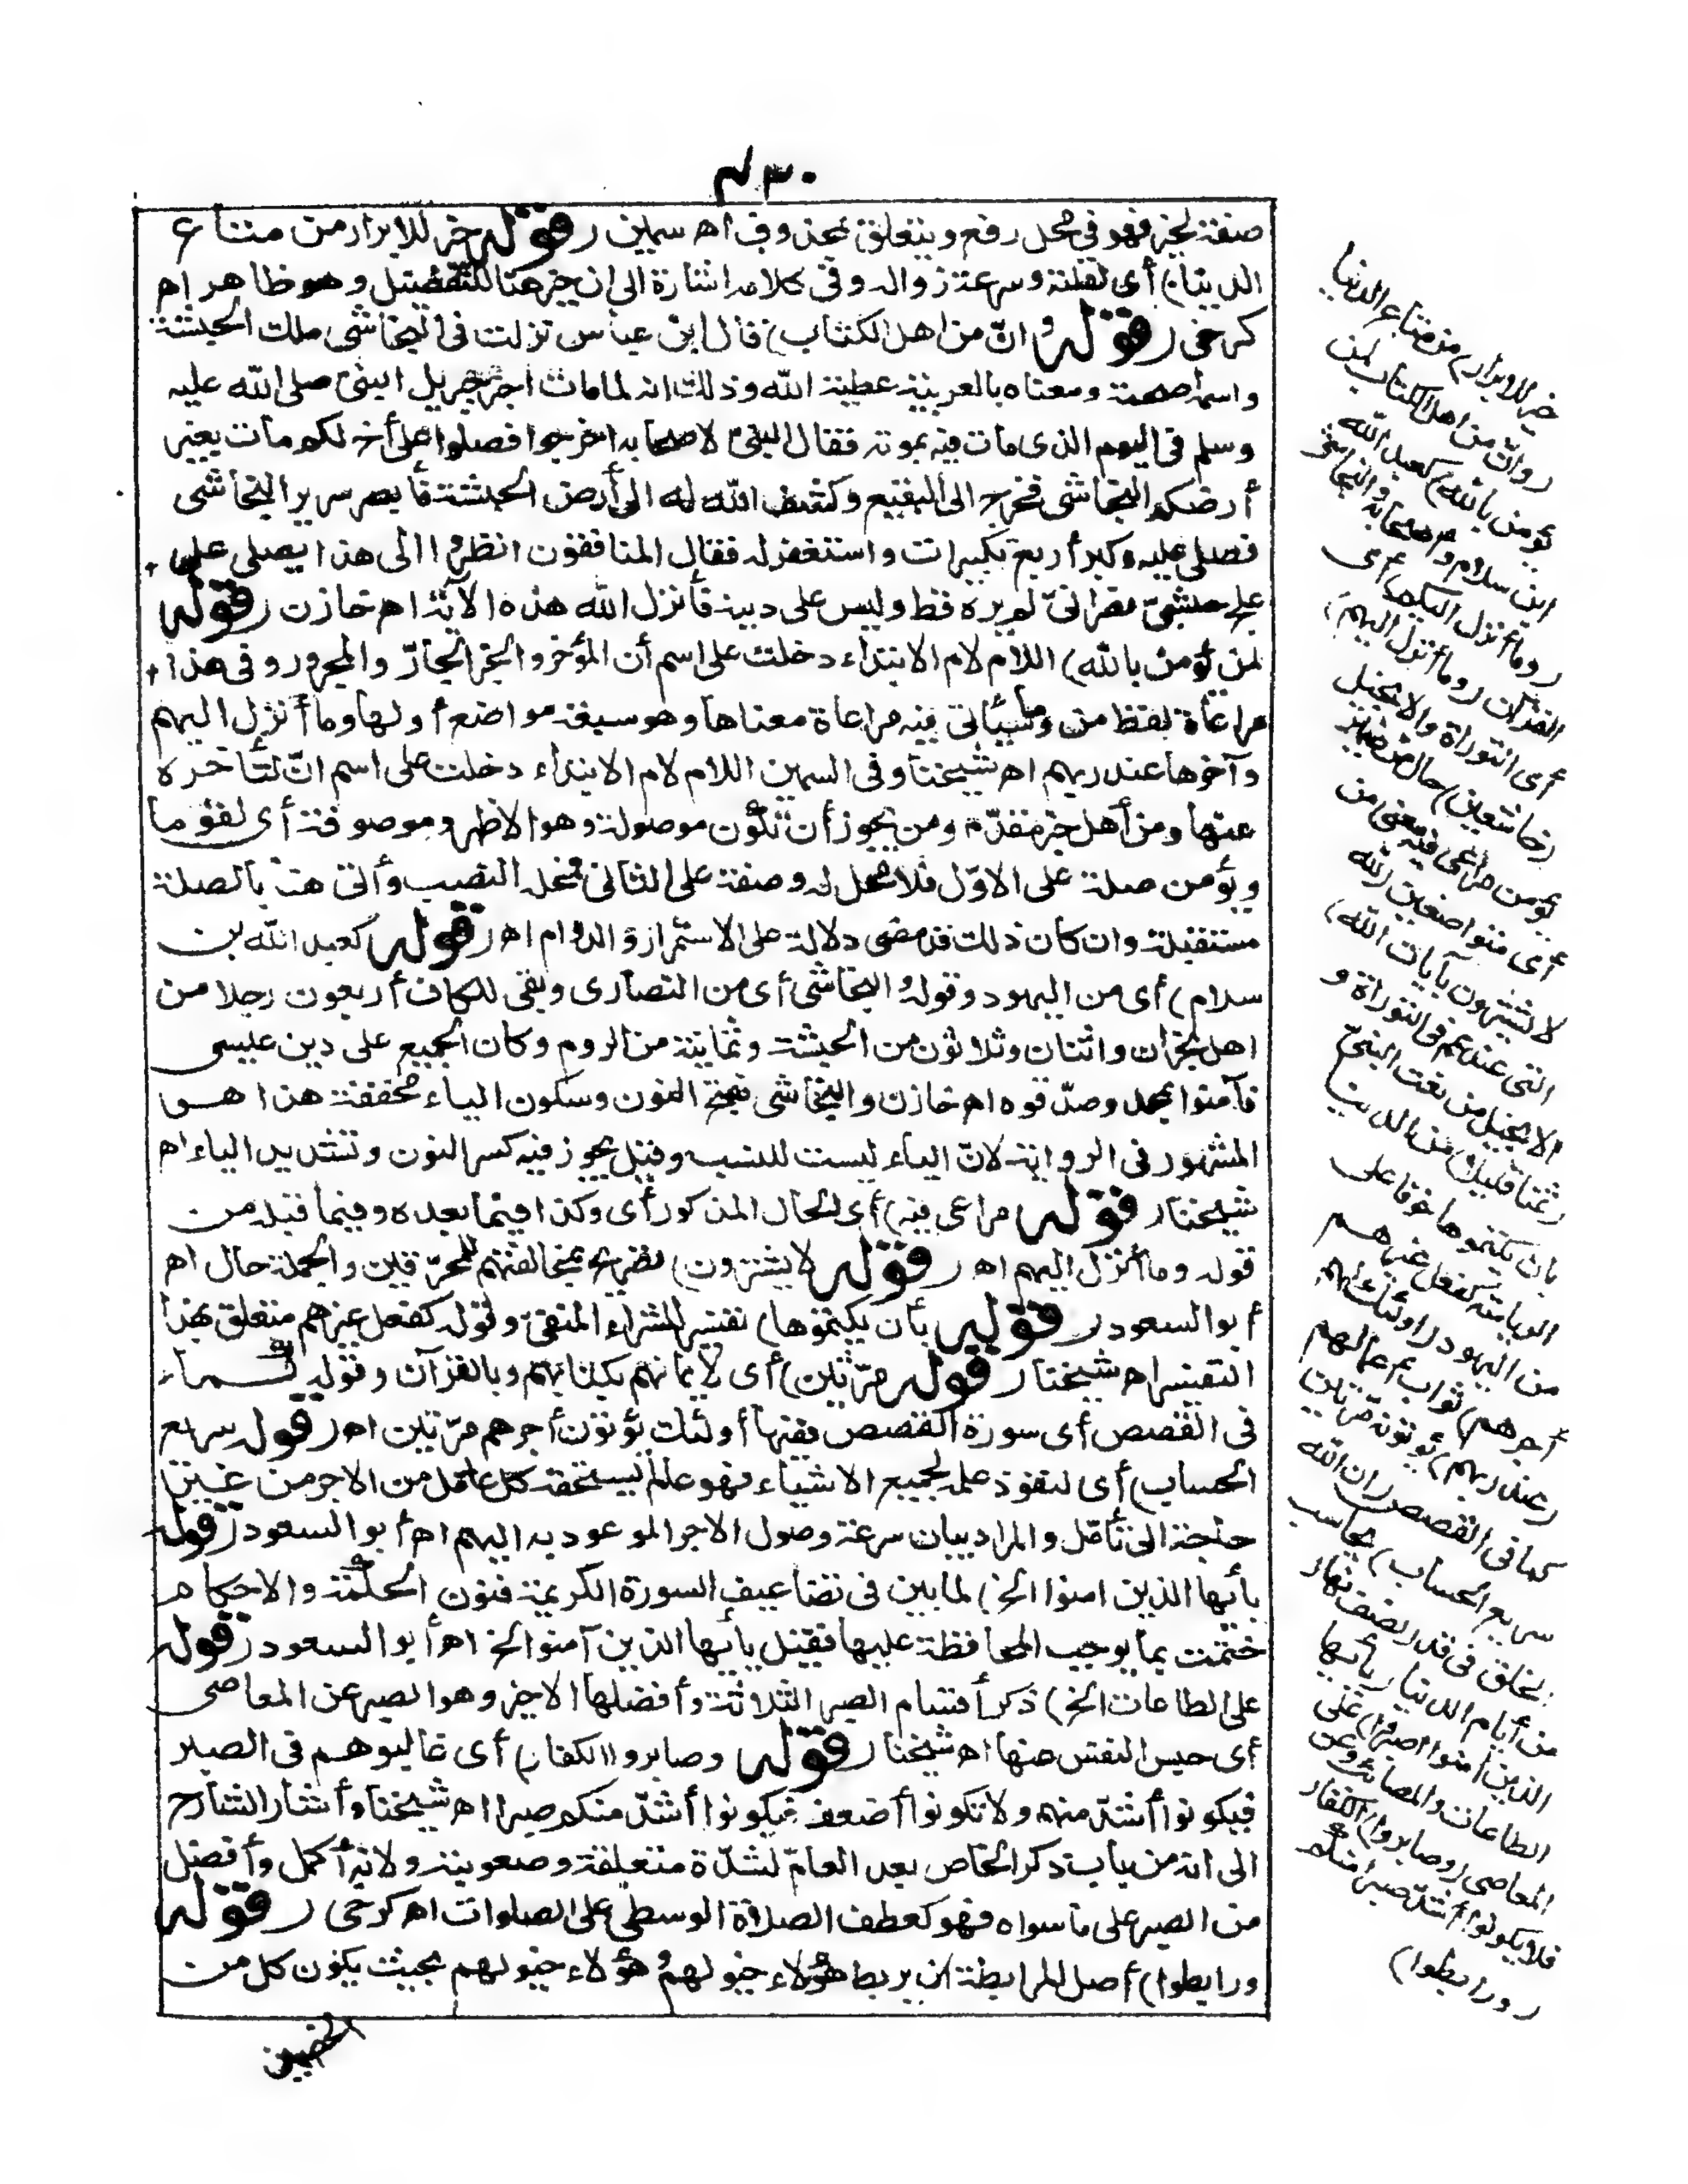 ٤٣٠
صفة لخير فهو في محل رفع ويتعلق بمحذوف اه سمين (قوله خير للابرار من متاع
الدنيا) أى لقلته وسرعة زواله وفى كلامه اشارة الى ان خير هنا للتفضيل وهو ظاهر اه
كرخى (قوله وانّ من اهل الكتاب) قال ابن عباس نزلت فى النجاشى ملك الحبشة
واسمه اصحمة ومعناه بالعربية عطية الله وذلك انه لما مات اخبر جبريل النبىّ صلى الله عليه
وسلم فى اليوم الذى مات فيه بموته فقال النبىّ لاصحابه اخرجوا فصلوا على أخ لكم مات بغير
أرضكم النجاشى فخرج الى البقيع وكشف الله له الى أرض الحبشة فأبصر سرير النجاشى
فصلى عليه وكبر أربع تكبيرات واستغفر له فقال المنافقون انظروا الى هذا يصلى على
علج حبشىّ نصرانىّ لم يره قط وليس على دينه فأنزل الله هذه الآية اه خازن (قوله
لمن يؤمن بالله) اللام لام الابتداء دخلت على اسم أن المؤخر والخبر الجارّ والمجرور وفى هذا
مراعاة لفظ من وما سيأتى فيه مراعاة معناها وهو سبعة مواضع أولها وما أنزل اليهم
وآخرها عند ربهم اه شيخنا وفى السمين اللام لام الابتداء دخلت على اسم انّ لتأخره
عنها ومن أهل خبر مقدّم ومن يجوز أن تكون موصولة وهو الاظهر وموصوفة أى لقوما
ويؤمن صلة على الاوّل فلا محل له وصفة على الثانى فمحله النصب وأتى هنا بالصلة
مستقبلة وان كان ذلك قد مضى دلالة على الاستمرار والدوام اه (قوله كعبد الله بن
سلام) أى من اليهود وقوله والنجاشى أى من النصارى وبقى للكاف أربعون رجلا من
اهل نجران واثنان وثلاثون من الحبشة وثمانية من الروم وكان الجميع على دين عيسى
فآمنوا بمحمد وصدّقوه اه خازن والنجاشى بفتح النون وسكون الياء مخففة هذا هو
المشهور فى الرواية لانّ الياء ليست للنسب وقيل يجوز فيه كسر النون وتشديد الياء اه
شيخنا (قوله مراعى فيه) أى الحال المذكور أى وكذا فيما بعده وفيما قبله من
قوله وما أنزل اليهم اه (قوله لا يشترون) تصريح بمخالفتهم للمحرّفين والجملة حال اه
أبو السعود (قوله بأن يكتموها) تفسير للشراء المنفىّ وقوله كفعل غيرهم متعلق بهذا
التفسير اه شيخنا (قوله مرّتين) أى لايمانهم بكتابهم وبالقرآن وقوله كما
فى القصص أى سورة القصص ففيها أولئك يؤتون أجرهم مرّتين اه (قوله سريع
الحساب) أى لنفوذ علمه بجميع الاشياء فهو عالم بما يستحقه كل عامل من الاجر من غير
حاجة الى تأمّل والمراد بيان سرعة وصول الاجر الموعود به اليهم اه أبو السعود (قوله
يأيها الذين امنوا الخ) لما بين فى تضاعيف السورة الكريمة فنون الحكمة والاحكام
ختمت بما يوجب المحافظة عليها فقيل يأيها الذين آمنوا الخ اه أبو السعود (قوله
على الطاعات الخ) ذكر أقسام الصبر الثلاثة وأفضلها الاخير وهو الصبر عن المعاصى
أى حبس النفس عنها اه شيخنا (قوله وصابروا الكفار) أى غالبوهم فى الصبر
فيكونوا أشدّ منهم ولا تكونوا أضعف فيكونوا أشدّ منكم صبرا اه شيخنا وأشار الشارح
الى انه من باب ذكر الخاص بعد العامّ لشدّة متعلقة وصعوبته ولانه أكمل وأفضل
من الصبر على ما سواه فهو كعطف الصلاة الوسطى على الصلوات اه كرخى (قوله
ورابطوا) أصل المرابطة ان يربط هؤلاء خيولهم وهؤلاء خيولهم بحيث يكون كل من
الخصمين
خير للابرار) من متاع الدنيا
(وانّ من اهل الكتاب لمن
يؤمن بالله) كعبد الله
ابن سلام وأصحابه والنجاشى
(وما أنزل اليكم) أى
القرآن (وما أنزل اليهم)
أى التوراة والانجيل
(خاشعين) حال من ضمير
يؤمن مراعى فيه معنى من
أى متواضعين (لله
لا يشترون بآيات الله)
التى عندهم فى التوراة و
الانجيل من نعت النبىّ
(ثمنا قليلا) من الدنيا
بان يكتموها خوفا على
الرياسة كفعل غيرهم
من اليهود (أولئك لهم
أجرهم) ثواب أعمالهم
(عند ربهم) يؤتونه مرّتين
كما فى القصص (ان الله
سريع الحساب) يحاسب
الخلق فى قدر نصف نهار
من أيام الدنيا (يأيها
الذين آمنوا اصبروا) على
الطاعات والمصائب وعن
المعاصى (وصابروا) الكفار
فلا يكونوا أشدّ صبرا منكم
(ورابطوا)